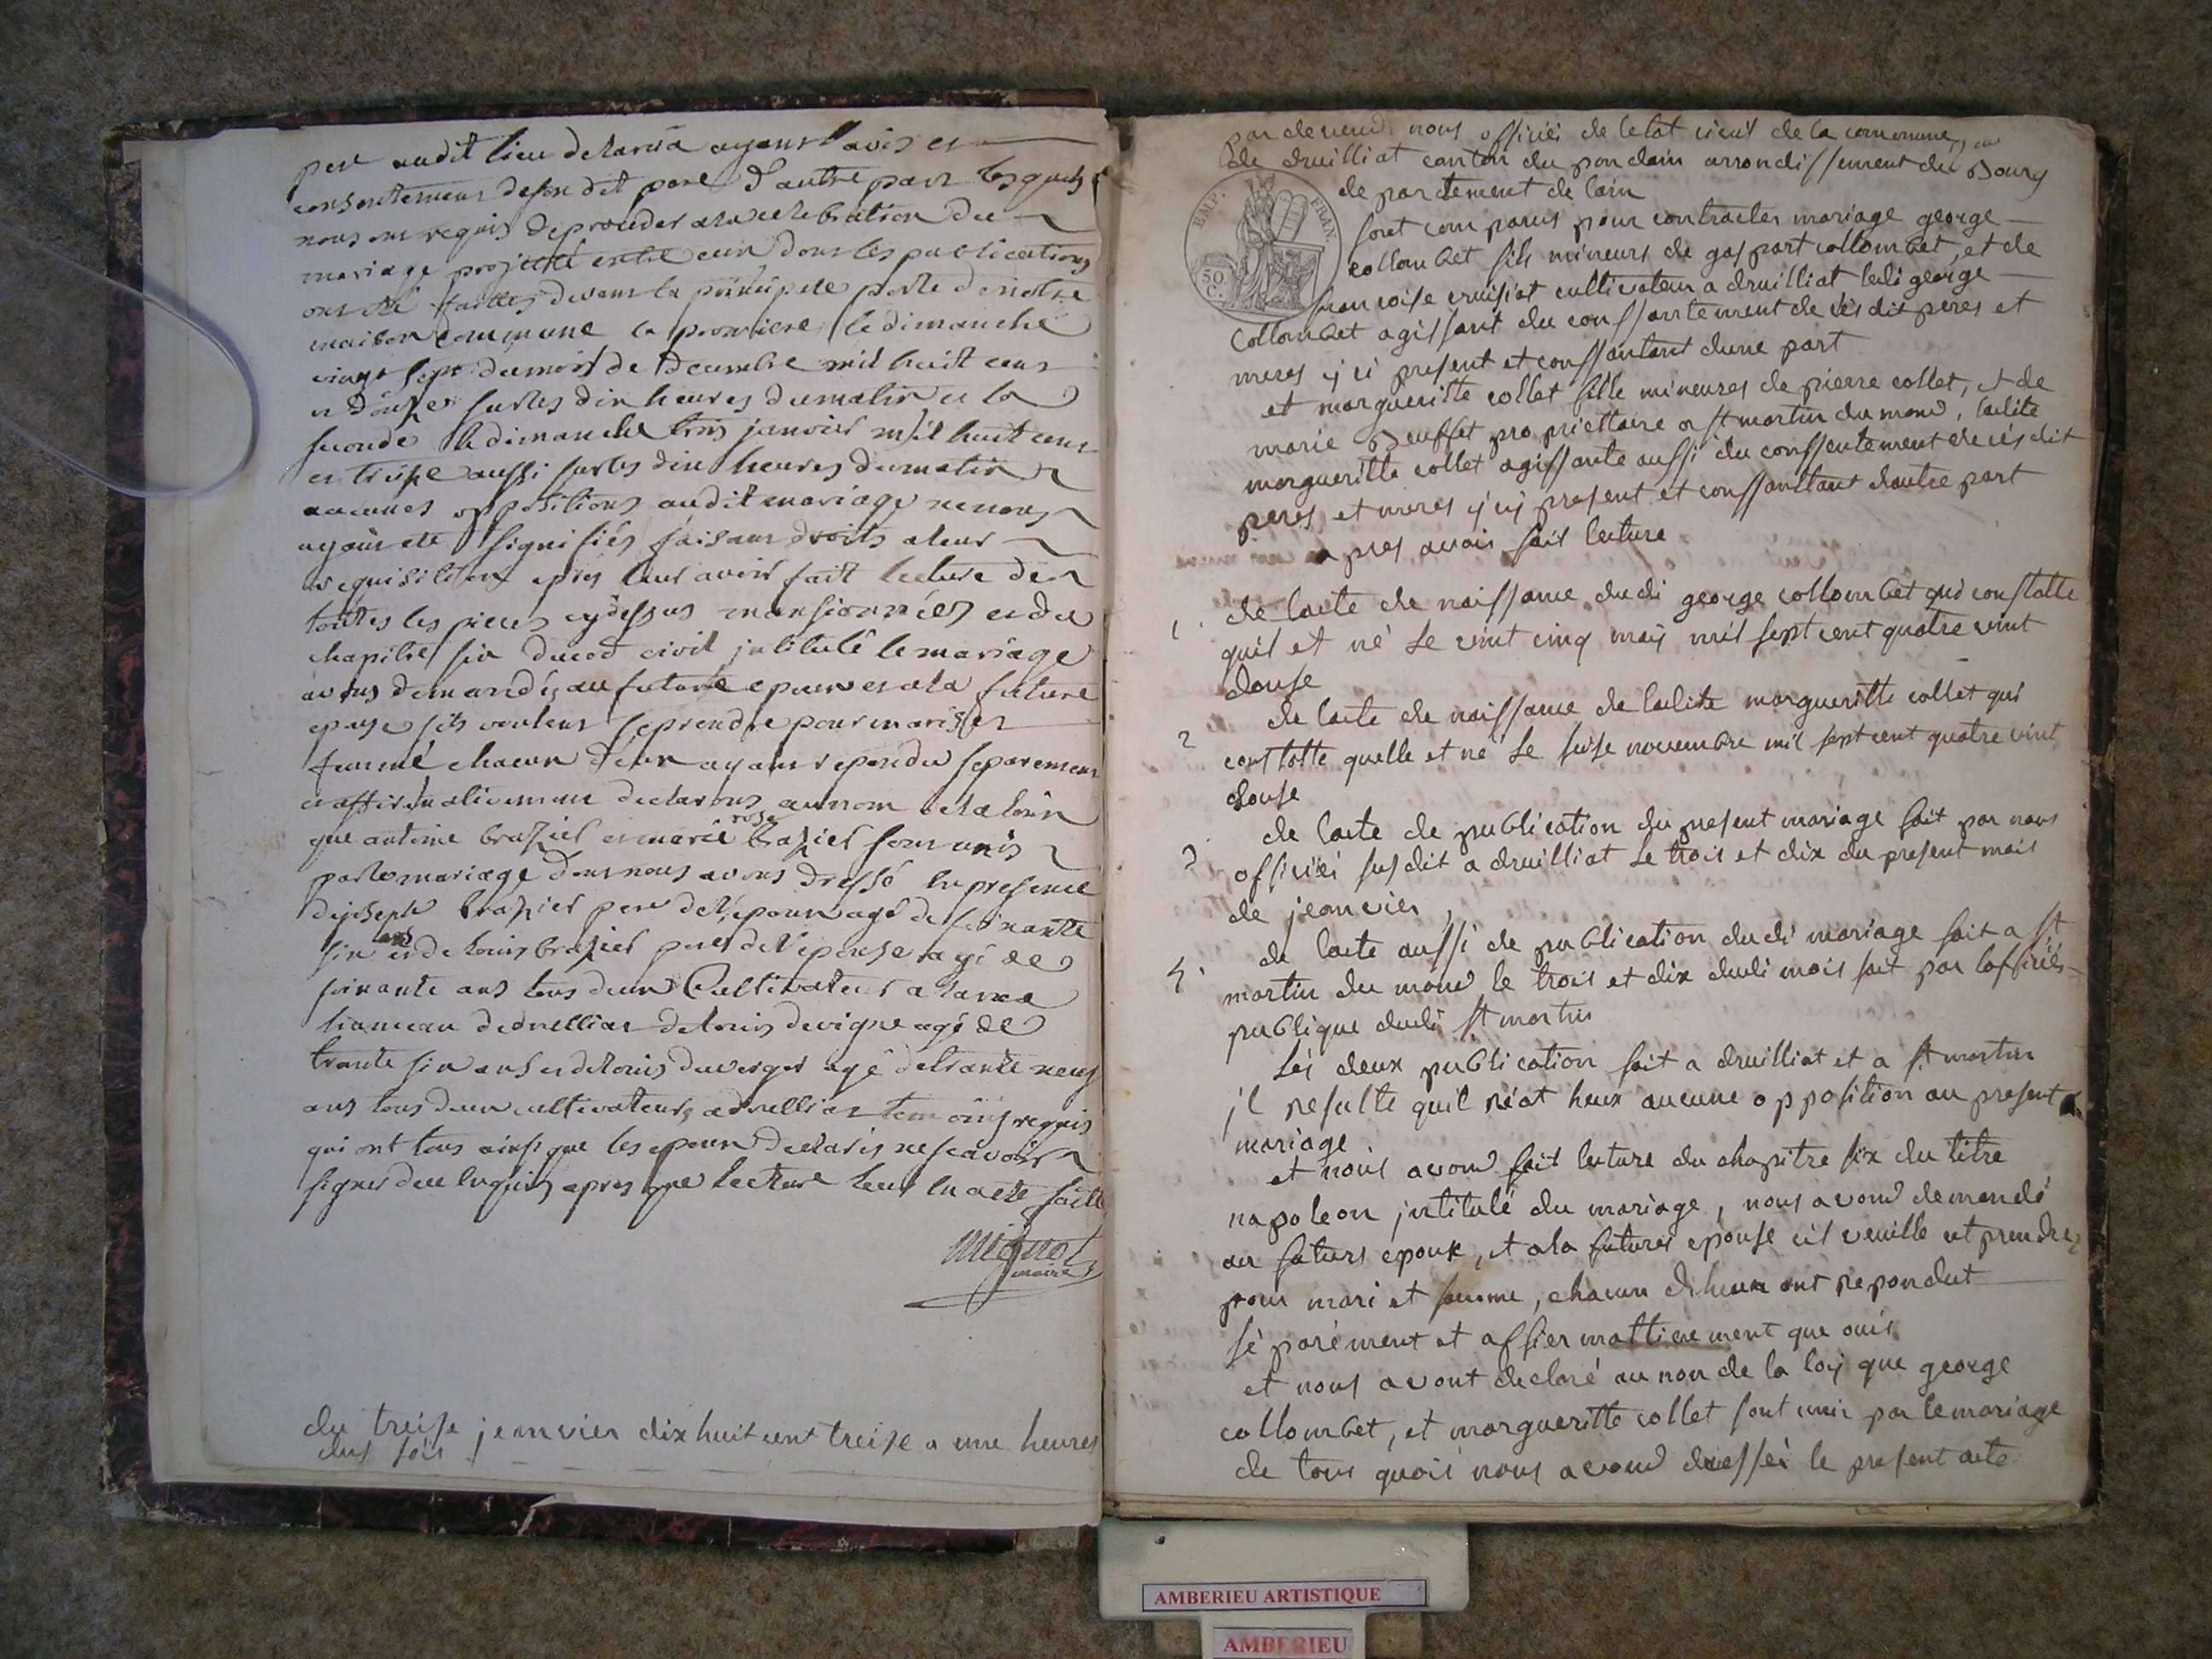 pere audit lieu de larina ayans l'avis et
consentement de son dit pere d'autre part lesquels
nous ont requis de proceder a la celebration du
mariage projetté entre eux dont les publications
ont été faittes devant la principale porte de notre
maison commune la premiere le dimanche
vingt sept du mois de decembre mil huit cens
et douze sur les dix heures du matin et la
seconde le dimanche trois janvier mil huit cens
et treise aussi sur les dix heures du matin
aucunes oppositions audit mariage ne nous
ayans ete signifiés faisans droits a leur
requisition apres leur avoir fait lecture de
toutes les pieces cydessus mansionnées et du
chapitre six du cod civil jntitulé le mariage
avons demandés au future epoux et a la future
epouse s'ils veulent se prendre pour maris et
femme chacun d'eux ayans repondu separemens
et affirmativement declarons au nom de la loix
que antoine brazier et marie rose brazier sont unis
par le mariage dont nous avons dressé en presence
de joseph brazier pere de l'epoux agé de soixante
six ans et de louis brazier pere de l'epouse agé de
soixante ans tous deux Cultivateurs a
hameau de druillias de louis devigne agé de
trante six ans et de louis duverger agé de trante neuf
ans tous deux cultivateurs a druillias temoins requis
qui ont tous ainsi que les epoux declarés ne scavoir
signer de ce enquis apres que lecture leur en aete faitte
mignot
maire
du treise jeanvier dix huit cent treise a une heures
dus soir
par devend nous officiéi de letat cieuil de la commune
de druilliat canton du pon dain arrondissement de Bourg
de partement de lain
EMP. FRAN
50 C.
sont comparus pour contracter mariage george
collombet fils mineurs de gaspart collombet, et de
francoise cruisiat cultivateur a druilliat ledi george
Collombet agissant du conssantement de ses dit peres et
meres ici present et conssantant dune part
et margueritte collet fille mineures de pierre collet, et de
marie Beuffet propriettaire a st martin du mond, ladite
margueritte collet agissante aussi du conssentement de ses dit
peres et meres ici present et conssantant dautre part
apres avoir fait lecture
1. de lacte de naissance dudi george collombet qui constatte
quil et né le vint cinq may mil sept cent quatre vint
douse
2 de lacte de naissance de ladite margueritte collet qui
constatte quelle et né le seise novembre mil sept cent quatre vint
douse
3 de lacte de publication du present mariage fait par nous
officiéi susdit a druilliat le trois et dix du present mois
de jeanvier
4. de lacte aussi de publication dudi mariage fait a st
martin du mond le trois et dix dudi mois fait par lofficiés
publique dudi st martin
Lés deux publication fait a druilliat et a st martin
jl resulte quil néat heux aucune opposition au present
mariage.
et nous avond fait lecture du chapitre six du titre
napoleon jntitulé du mariage, nous avond demandé
au futurs époux, et ala futures epouse cil veuille et prendre
pour mari et femme, chacun deheux ont repondut
séparément et affiermattivement que ouis
et nous avont declaré au non de la loy que george
collombet, et margueritte collet sont unir par le mariage
de tous quois nous avond dressés le present acte
AMBERIEU ARTISTIQUE
AMBERIEU